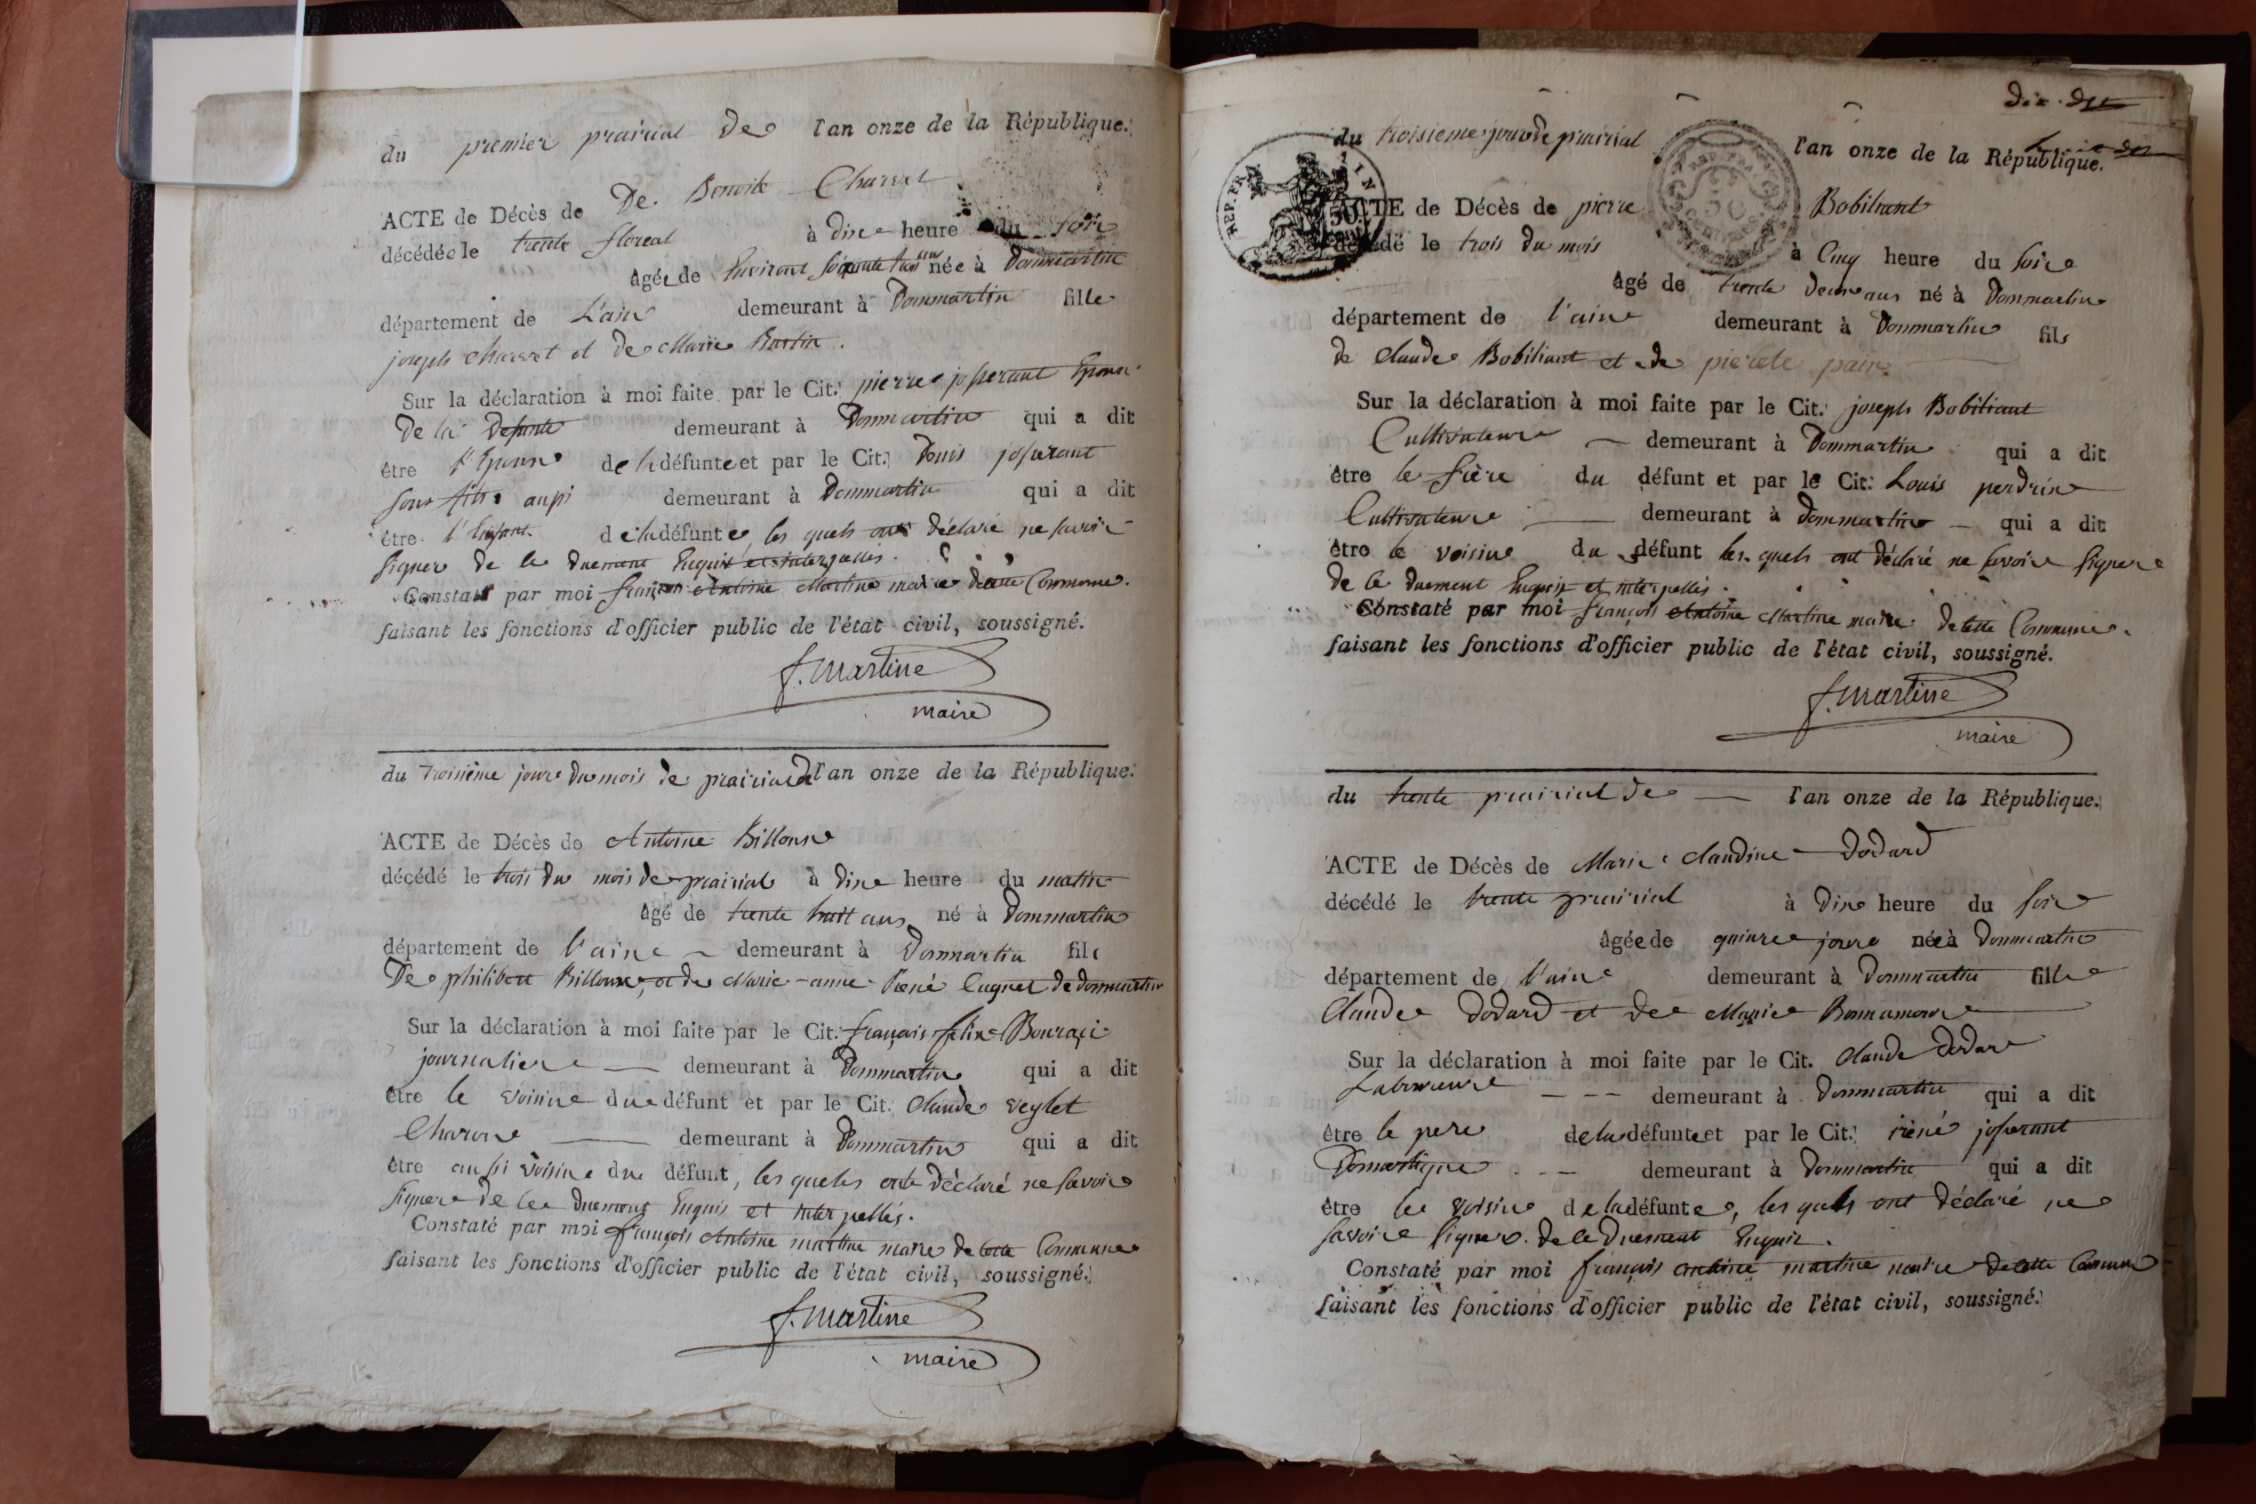 du premier prairial De l'an onze de la République.
ACTE de Décès de De Benoite Charvet
décédée le trente floreal à dix heure du soir
âgée de Environt soixante trois ans née à Dommartin
département de L'ain demeurant à Dommartin fille
joseph charvet et de Marie
Sur la déclaration à moi faite par le Cit. pierre josserant Epoux
De la Defunte demeurant à Dommartin qui a dit
être l'Epoux de la défunte et par le Cit. Denis josserant
son fils aussi demeurant à Dommartin qui a dit
être l'Enfant de la défunte, les quels ont déclaré ne savoir
signer de le duement Enquis et interpellés.
Constaté par moi françois Antoine Martine maire de cette Commune.
faisant les fonctions d'officier public de l'état civil, soussigné.
f. Martine
maire
du troisième jour du mois de prairial de l'an onze de la République.
ACTE de Décès de Antoine Billoux
décédé le trois du mois de prairial à dix heure du matin
âgé de trente huit ans né à Dommartin
département de l'ain demeurant à Dommartin fils
De philibert Billoux, et de Marie-anne Cugnet de dommartin
Sur la déclaration à moi faite par le Cit. françois felix
journalier demeurant à Dommartin qui a dit
être le voisin du défunt et par le Cit. Claude veylet
Charon demeurant à Dommartin qui a dit
être aussi voisin du défunt, les quels ont déclaré ne savoir
signer de le duement Enquis et interpellés.
Constaté par moi françois Antoine martine maire de cette Commune
faisant les fonctions d'officier public de l'état civil, soussigné.
f. Martine
maire
du troisieme jour de prairial l'an onze de la République.
REP. FRA.
ACTE de Décès de pierre Bobiliant
décédé le trois du mois à Cinq heure du soir
âgé de trente deux ans né à Dommartin
département de l'ain demeurant à Dommartin fils
de Claude Bobiliant et de pierete
Sur la déclaration à moi faite par le Cit. joseph Bobiliant
Cultivateur demeurant à Dommartin qui a dit
être le frère du défunt et par le Cit. Louis perdrix
Cultivateur demeurant à Dommartin qui a dit
être le voisin du défunt les quels ont déclaré ne savoir signer
de le duement Enquis et interpellés.
Constaté par moi françois Antoine Martine maire de cette Commune.
faisant les fonctions d'officier public de l'état civil, soussigné.
f. Martine
maire
du trente prairial de l'an onze de la République.
ACTE de Décès de Marie Claudine Dodard
décédé le trente prairial à Dix heure du soir
âgée de quinze jours née à Dommartin
département de l'ain demeurant à Dommartin fille
Claude Dodard et de Marie Bonnamour
Sur la déclaration à moi faite par le Cit. Claude Dodard
Laboureur demeurant à Dommartin qui a dit
être le pere de la défunte et par le Cit. josserant
Domestique demeurant à Dommartin qui a dit
être le voisin de la défunte, les quels ont déclaré ne
savoir signer de le Duement Enquis.
Constaté par moi françois antoine martine maire de cette Commune
faisant les fonctions d'officier public de l'état civil, soussigné.